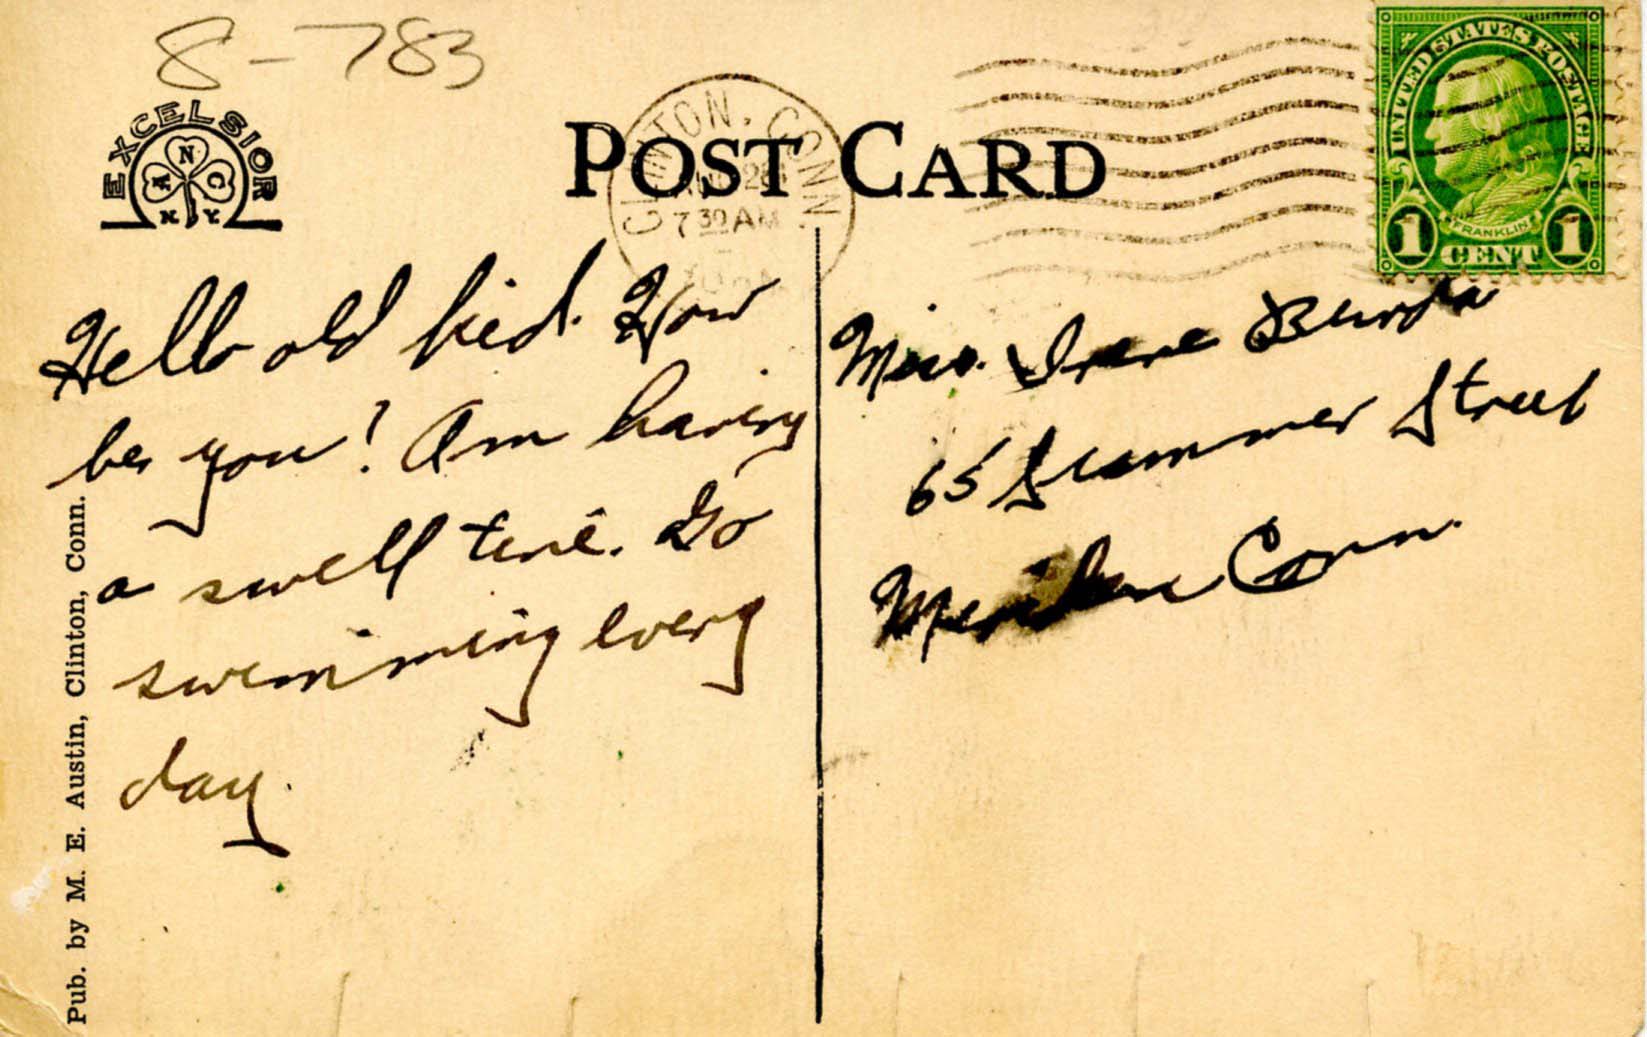 8-783
EXCELSIOR
N
N. Y.
POST CARD
CLINTON, CONN.
28
7 30 AM
UNITED STATES POSTAGE
FRANKLIN
1 CENT 1
Hello old kid. How
be you? Am having
a swell time. Go
swimming every
day.
Miss. Irene
65 Summer Street
Meriden Conn.
Pub. by M. E. Austin, Clinton, Conn.